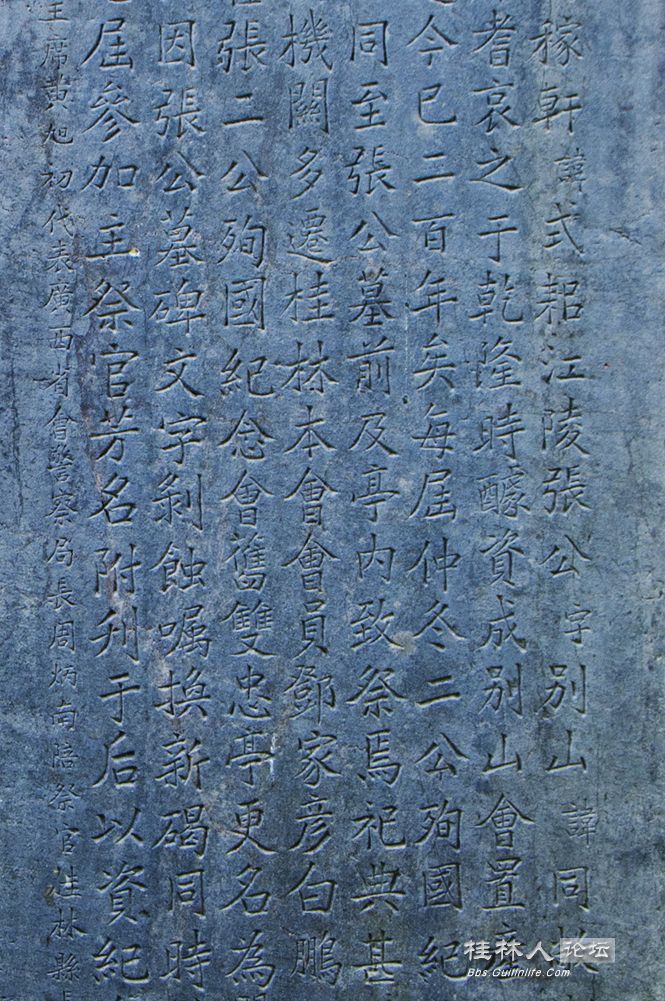 稼軒諱式耜江陵張公字別山諱同
耆哀之于乾隆時醵資成別山會置
今已二百年矣每屆仲冬二公殉國紀
同至張公墓前及亭內致祭焉祀典甚
機關多遷桂林本會會員鄧家彥白鵬
張二公殉國紀念會舊雙忠亭更名為
因張公墓碑文字剝蝕嘱換新碣同時
屆參加主祭官芳名附刋于后以資紀
主席黃旭初代表廣西省會警察局長周炳南陪祭官桂林縣長
桂林人论坛
Bbs.Guilinlife.Com